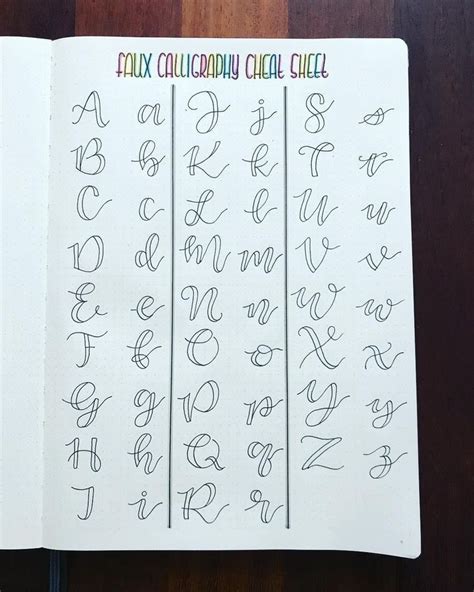 FAUX CALLIGRAPHY CHEAT SHEET
A a J j S s
B b K k T t
C c L l U u
D d M m V v
E e N n W w
F f O o X x
G g P p Y y
H h Q q Z z
I i R r